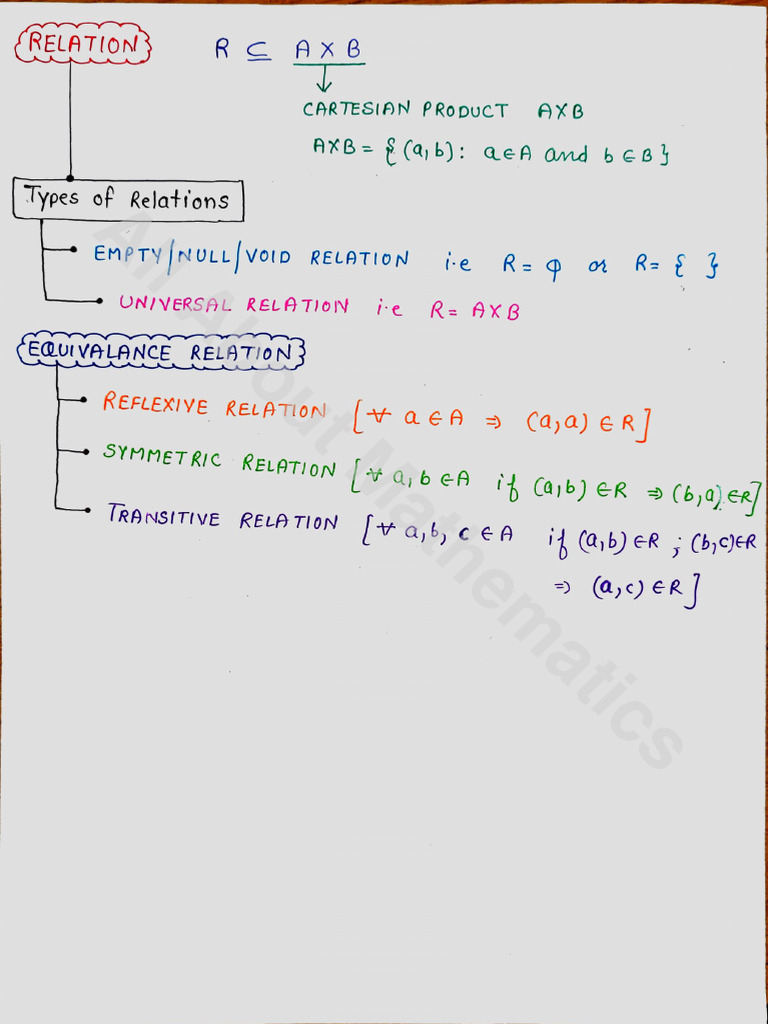 RELATION R ⊆ A X B
CARTESIAN PRODUCT AXB
AXB = {(a,b): a∈A and b∈B}
Types of Relations
EMPTY/NULL/VOID RELATION i.e R = φ or R = { }
UNIVERSAL RELATION i.e R = AXB
EQUIVALANCE RELATION
REFLEXIVE RELATION [∀ a∈A ⇒ (a,a) ∈R]
SYMMETRIC RELATION [∀ a,b∈A if (a,b)∈R ⇒ (b,a)∈R]
TRANSITIVE RELATION [∀ a,b, c∈A if (a,b)∈R ; (b,c)∈R
⇒ (a,c)∈R]
All About Mathematics